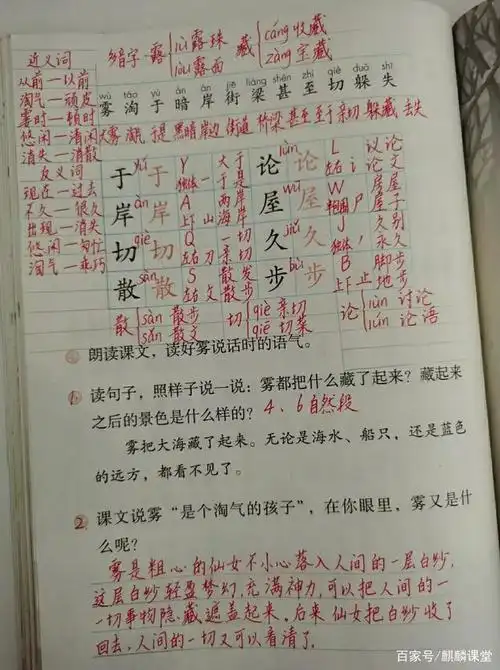 近义词
从前—以前
淘气—顽皮
霎时—顿时
悠闲—清闲
消失—消散
反义词
现在—过去
不久—很久
出现—消失
悠闲—匆忙
淘气—乖巧
多音字 露 lù露珠 藏 cáng收藏
lòu露面 zàng宝藏
wù táo yú àn àn jiē liáng shèn zhì qiè duǒ shī
雾 淘 于 暗 岸 街 梁 甚 至 切 躲 失
大雾 淘气 于是 黑暗 岸边 街道 桥梁 甚至 至于 亲切 躲藏 丢失
于 yú 于 Y 大于
独体 一 于是
论 lùn 论 L 议论
左右 讠 论文
岸 àn 岸 A 两岸
上下 山 海岸
屋 wū 屋 W 房屋
半包围 尸 屋子
切 qiè 切 Q 一切
左右 刀 亲切
久 jiǔ 久 J 久别
独体 丿 永久
散 sàn 散 S 散发
左右 攵 散步
步 bù 步 B 脚步
上下 止 地步
散 sàn 散步 切 qiè 亲切 论 lùn 讨论
sǎn 散文 qiē 切菜 lún 论语
朗读课文，读好雾说话时的语气。
读句子，照样子说一说：雾都把什么藏了起来？藏起来
之后的景色是什么样的？ 4、6自然段
雾把大海藏了起来。无论是海水、船只，还是蓝色
的远方，都看不见了。
2 课文说雾“是个淘气的孩子”，在你眼里，雾又是什
么呢？
雾是粗心的仙女不小心落入人间的一层白纱，
这层白纱轻盈梦幻，充满神力，可以把人间的一
一切事物隐藏遮盖起来。后来仙女把白纱收了
回去，人间的一切又可以看清了。
百家号/麒麟课堂